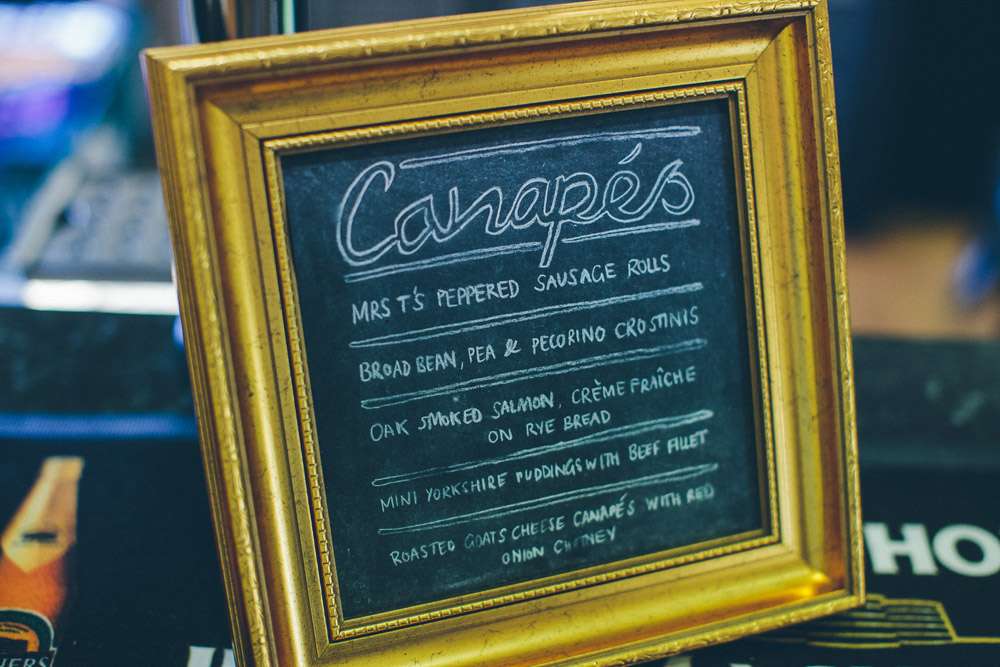 Canapés
MRS T'S PEPPERED SAUSAGE ROLLS
BROAD BEAN, PEA & PECORINO CROSTINIS
OAK SMOKED SALMON, CRÈME FRAÎCHE
ON RYE BREAD
MINI YORKSHIRE PUDDINGS WITH BEEF FILLET
ROASTED GOATS CHEESE CANAPÉS WITH RED
ONION CHUTNEY
HO
HERS